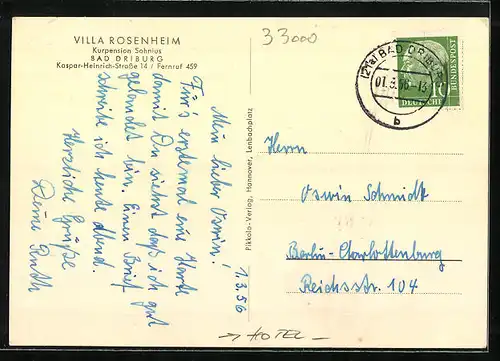 VILLA ROSENHEIM
Kurpension Sohnius
BAD DRIBURG
Kaspar-Heinrich-Straße 14 / Fernruf 459
33000
(21a) BAD DRIBURG
01.3.56-13
b
10
DEUTSCHE
BUNDESPOST
1.3.56
Mein lieber Oswin!
Für's erstemal eine Karte
damit Du siehst daß ich gut
gelandet bin. Einen Brief
schreibe ich heute Abend.
Herzliche Grüße
Deine Ruth
Pikkolo-Verlag, Hannover, Lenbachplatz
Herrn
Oswin Schmidt
Berlin-Charlottenburg
Reichsstr. 104
→ HOTEL -